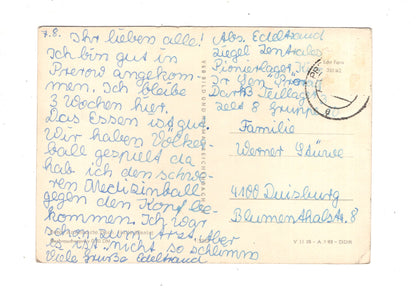 7.8. Ihr lieben alle!
Ich bin gut in
Prerow angekom-
men. Ich bleibe
3 Wochen hier.
Das Essen ist gut.
Wir haben Völker-
ball gespielt da
hab ich den schwe-
ren Medizinball
gegen den Kopf be-
kommen. Ich war
schon zum Arzt. Aber
es ist nicht so schlimm
Viele Grüße Edeltraud
Abs. Edeltraud
Ziegel Zentrales
Pionierlager
Darß Teillager
Zelt 8 Gruppe
Familie
Werner Stüwe
4100 Duisburg
Blumenthalstr. 8
DDR